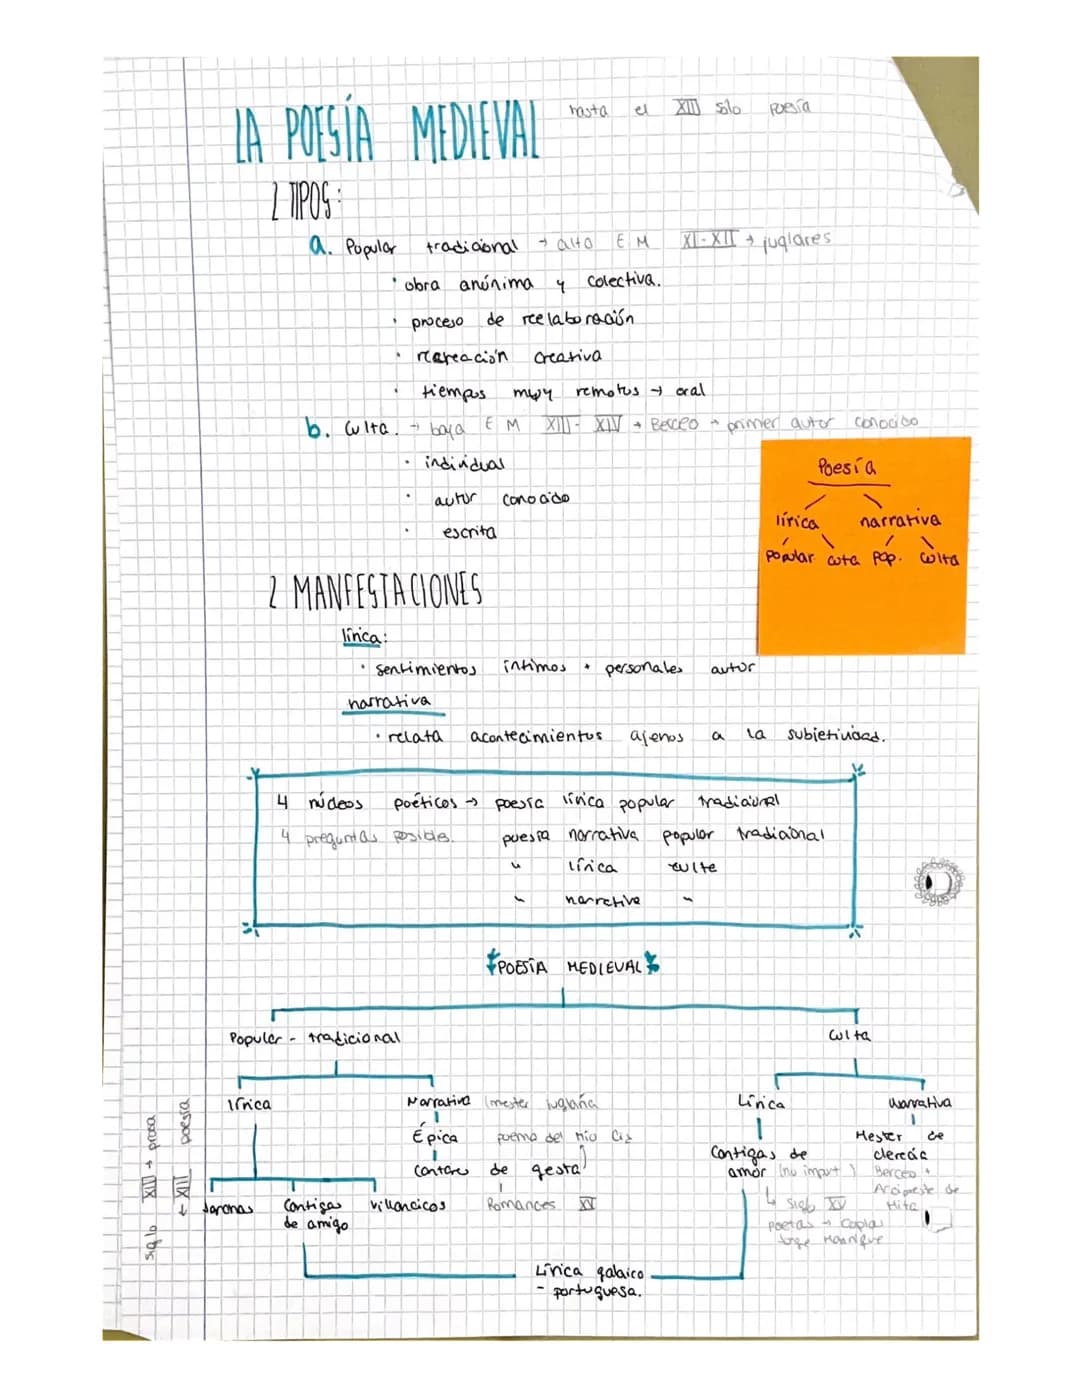 LA POESÍA MEDIEVAL hasta el XIII sólo poesía
2 TIPOS:
a. Popular tradicional → alta E M XI-XII → juglares
· obra anónima y colectiva.
· proceso de reelaboración
· recreación creativa
· tiempos muy remotos → oral
b. Culta. → baja E M XIII- XIV → Berceo → primer autor conocido
· individual
· autor conocido
· escrita
Poesía
lírica narrativa
popular cuta pop. culta
2 MANFESTACIONES
lírica:
· sentimientos íntimos + personales autor
narrativa
· relata acontecimientos ajenos a la subjetividad.
4 núcleos poéticos → poesía lírica popular tradicional
4 preguntas posibles. puesía narrativa popular tradicional
" lírica culte
" narrativa "
POESÍA MEDIEVAL
Popular - tradicional culta
lírica Narrativa (mester juglaría Lírica narrativa
Épica poema del Mio Cid Mester de
Cantares de gesta) Contigas de clerecía
amor (no import) Berceo +
Jarchas Contigas villancicos Romances XV Arcipreste de
de amigo ↳ siglo XV Hita
poetas → Coplas
Jorge Manrique
Lírica galaico
- portuguesa.
siglo XIII → prosa
← XIII poesía